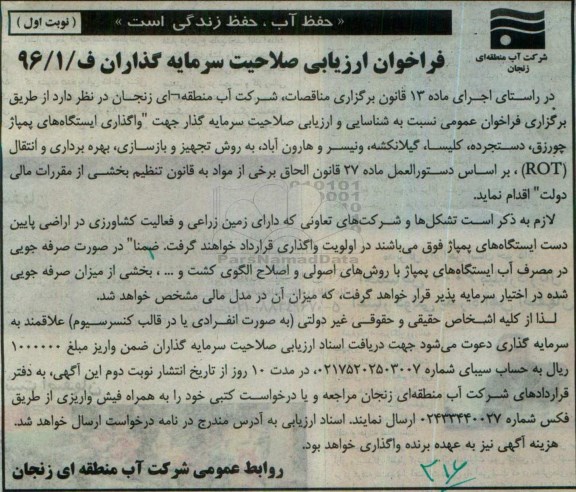 « حفظ آب ، حفظ زندگی است »
( نوبت اول )
شرکت آب منطقه‌ای
زنجان
فراخوان ارزیابی صلاحیت سرمایه گذاران ف/۹۶/۱
در راستای اجرای ماده ۱۳ قانون برگزاری مناقصات، شرکت آب منطقه¬ای زنجان در نظر دارد از طریق
برگزاری فراخوان عمومی نسبت به شناسایی و ارزیابی صلاحیت سرمایه گذار جهت "واگذاری ایستگاه‌های پمپاژ
چورزق، دستجرده، کلیسا، گیلانکشه، ونیسر و هارون آباد، به روش تجهیز و بازسازی، بهره برداری و انتقال
(ROT) ، بر اساس دستورالعمل ماده ۲۷ قانون الحاق برخی از مواد به قانون تنظیم بخشی از مقررات مالی
دولت" اقدام نماید.
لازم به ذکر است تشکل‌ها و شرکت‌های تعاونی که دارای زمین زراعی و فعالیت کشاورزی در اراضی پایین
دست ایستگاه‌های پمپاژ فوق می‌باشند در اولویت واگذاری قرارداد خواهند گرفت. ضمنا" در صورت صرفه جویی
در مصرف آب ایستگاه‌های پمپاژ با روش‌های اصولی و اصلاح الگوی کشت و ... ، بخشی از میزان صرفه جویی
شده در اختیار سرمایه پذیر قرار خواهد گرفت، که میزان آن در مدل مالی مشخص خواهد شد.
لذا از کلیه اشخاص حقیقی و حقوقی غیر دولتی (به صورت انفرادی یا در قالب کنسرسیوم) علاقمند به
سرمایه گذاری دعوت می‌شود جهت دریافت اسناد ارزیابی صلاحیت سرمایه گذاران ضمن واریز مبلغ ۱۰۰۰۰۰۰
ریال به حساب سیبای شماره ۰۲۱۷۵۲۰۲۵۰۳۰۰۷، در مدت ۱۰ روز از تاریخ انتشار نوبت دوم این آگهی، به دفتر
قراردادهای شرکت آب منطقه‌ای زنجان مراجعه و یا درخواست کتبی خود را به همراه فیش واریزی از طریق
فکس شماره ۰۲۴۳۳۴۴۰۰۲۷ ارسال نمایند. اسناد ارزیابی به آدرس مندرج در نامه درخواست ارسال خواهد شد.
هزینه آگهی نیز به عهده برنده واگذاری خواهد بود.
روابط عمومی شرکت آب منطقه ای زنجان
۳۱۶
ParsNamadData